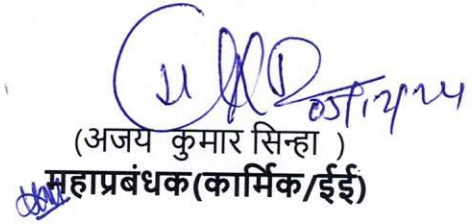 05/12/24
(अजय कुमार सिन्हा )
महाप्रबंधक(कार्मिक/ईई)